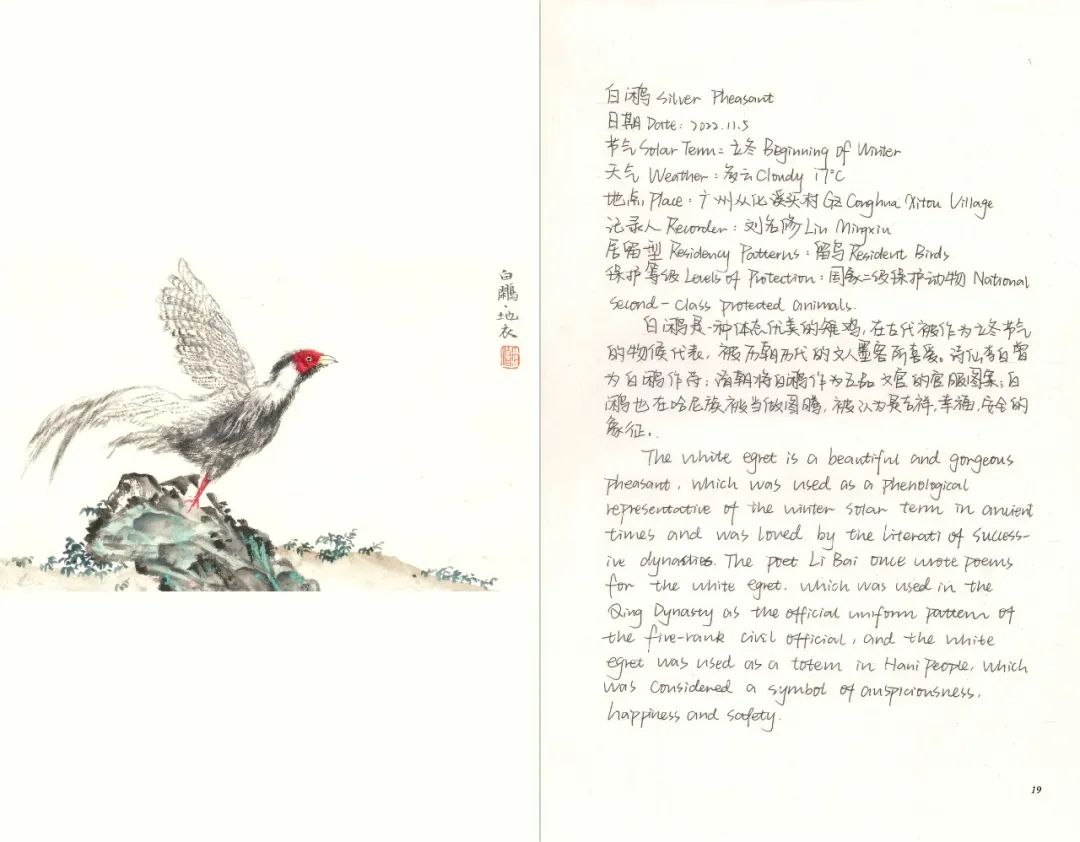 白鷴·地衣
白闲鸟 Silver Pheasant
日期 Date: 2022.11.5
节气 Solar Term: 立冬 Beginning of Winter
天气 Weather: 多云 Cloudy 17°C
地点 Place: 广州从化溪头村 GZ Conghua Xitou Village
记录人 Recorder: 刘名修 Liu Mingxiu
居留型 Residency Patterns: 留鸟 Resident Birds
保护等级 Levels of Protection: 国家二级保护动物 National
second-class protected animals.
白鹇是一种体态优美的雉鸡,在古代被作为立冬节气
的物候代表,被历朝历代的文人墨客所喜爱。诗仙李白曾
为白鹇作诗;清朝将白鹇作为五品文官的官服图案;白
鹇也在哈尼族被当做图腾,被认为是吉祥,幸福,安全的
象征。
The white egret is a beautiful and gorgeous
pheasant, which was used as a phenological
representative of the winter solar term in ancient
times and was loved by the literati of success-
ive dynasties. The poet Li Bai once wrote poems
for the white egret, which was used in the
Qing Dynasty as the official uniform pattern of
the five-rank civil official, and the white
egret was used as a totem in Hani People, which
was considered a symbol of auspiciousness,
happiness and safety.
19